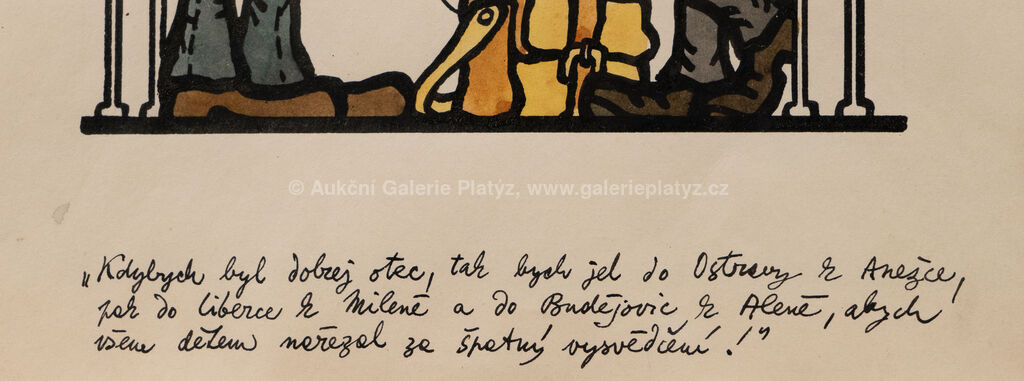 © Aukční Galerie Platýz, www.galerieplatyz.cz
„Kdybych byl dobrej otec, tak bych jel do Ostravy k Anežce,
pak do Liberce k Mileně a do Budějovic k Aleně, abych
všem dětem nařezal za špatný vysvědčení!“